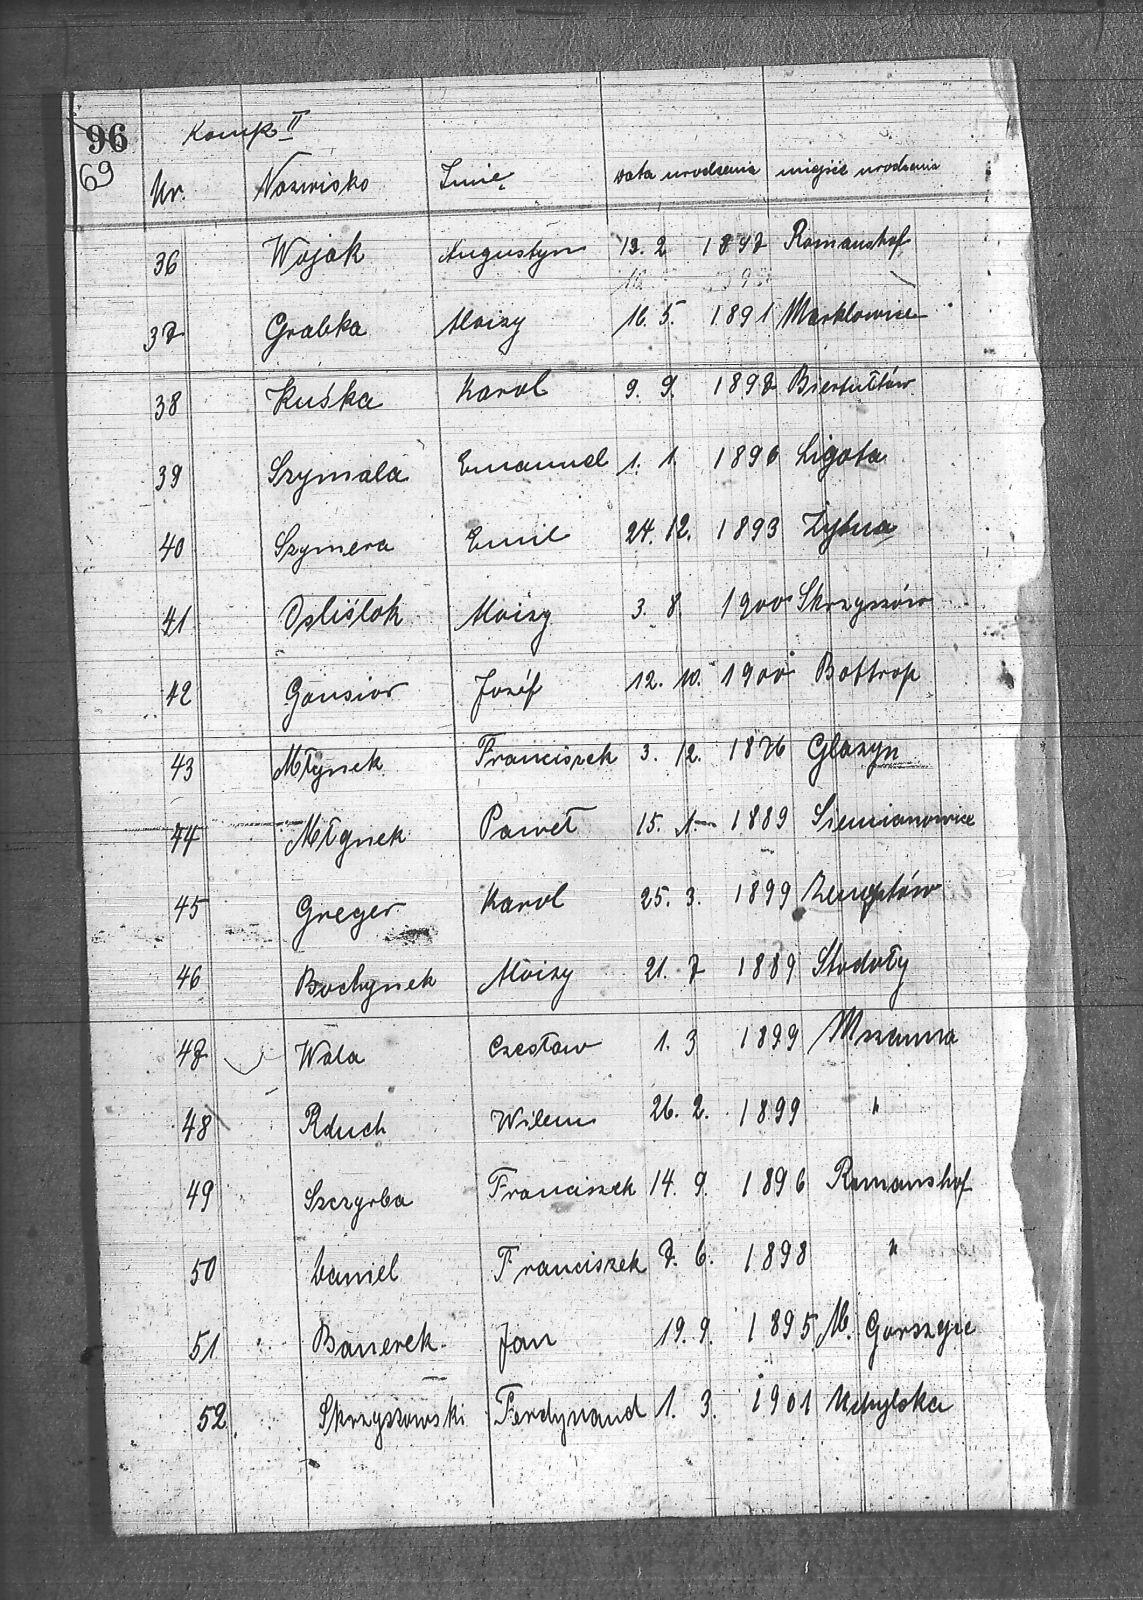 96 Komp. II
69
Nr. Nazwisko Imię data urodzenia miejsce urodzenia
36 Wojak Augustyn 13. 2 1897 Romanshof
37 Grabka Aloizy 16. 5. 1891 Marklowice
38 Kuśka Karol 9. 9. 1897 Biertułtów
39 Szymala Emanuel 1. 1. 1896 Ligota
40 Szymera Emil 24. 12. 1893 Żytna
41 Oslislok Aloizy 3. 8. 1900 Skrzyszów
42 Gonsior Józéf 12. 10. 1900 Bottrop
43 Młynek Franciszek 3. 12. 1876 Glazyn
44 Młynek Paweł 15. 1. 1889 Siemianowice
45 Greger Karol 25. 3. 1899
46 Bochynek Aloizy 21. 7 1889 Stodoły
47 Wala Czesław 1. 3 1899 Mszanna
48 Rduch Wilem 26. 2. 1899 "
49 Szczyrba Franciszek 14. 9. 1896 Romanshof
50 Daniel Franciszek 7. 6. 1898 "
51 Banerek Jan 19. 9. 1895 M. Gorszyce
52. Skrzyszowski Ferdynand 1. 3. 1901